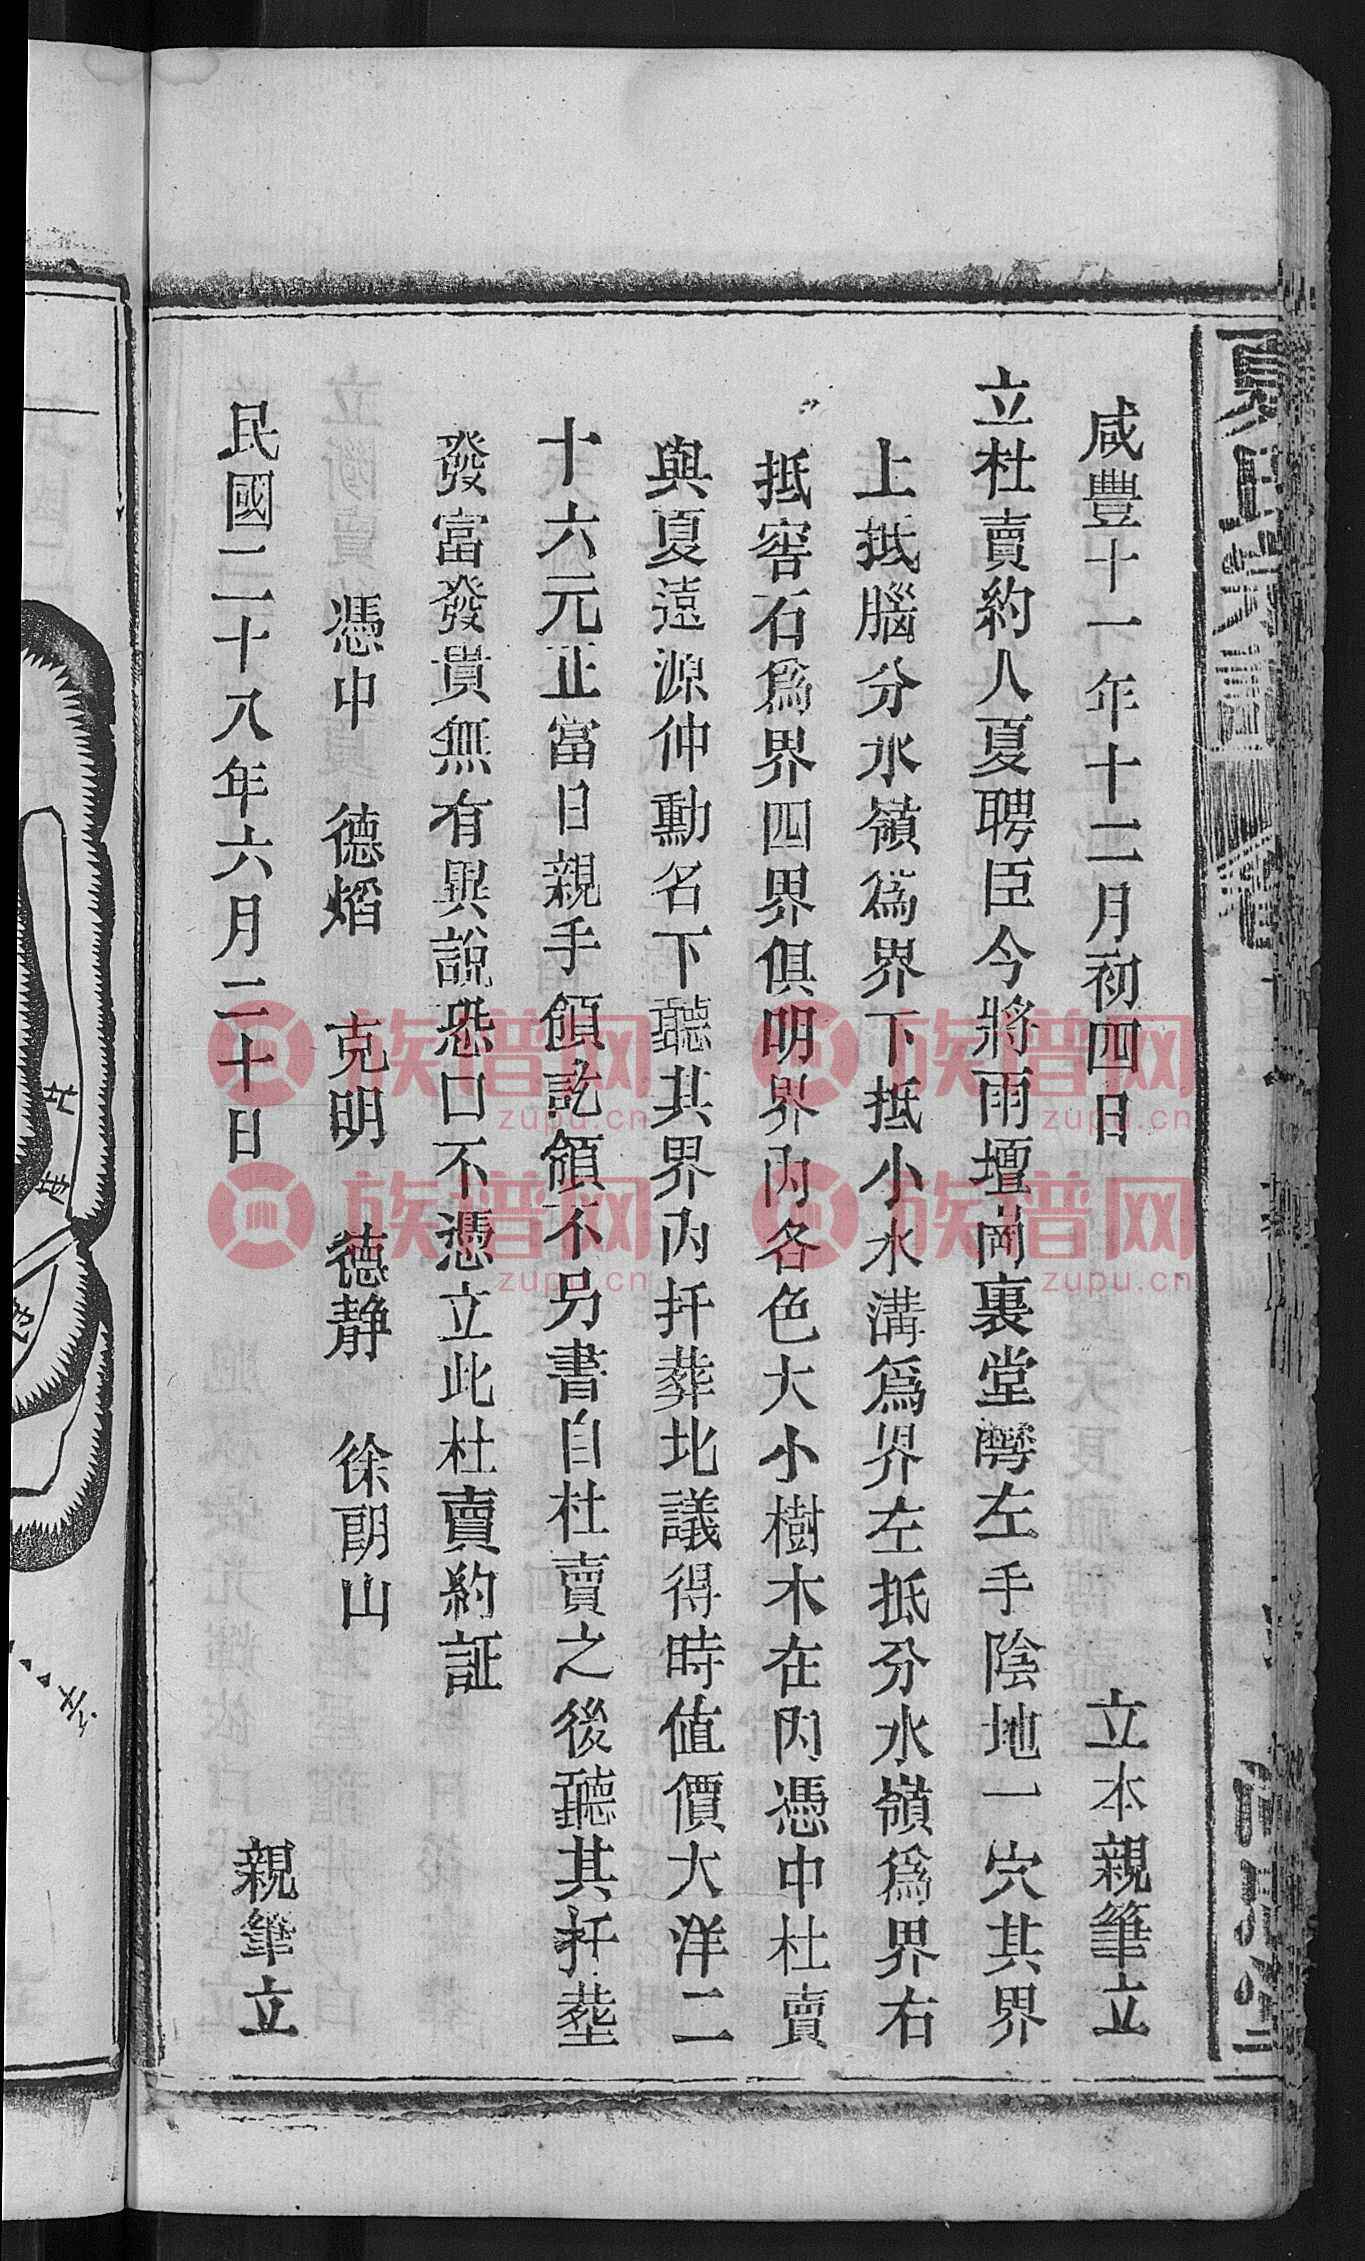 咸豐十一年十二月初四日　立本親筆立
立杜賣約人夏聘臣今將雨壇崗裏堂灣左手陰地一穴其界
上抵腦分水嶺爲界下抵小水溝爲界左抵分水嶺爲界右
抵窖石爲界四界俱明界內各色大小樹木在內憑中杜賣
與夏遠源仲勳名下聽其界內扦葬北議得時值價大洋二
十六元正當日親手領訖領不另書自杜賣之後聽其扦塟
發富發貴無有異說恐口不憑立此杜賣約証
憑中　德熖　克明　德静　徐朗山
民國二十八年六月二十日　親筆立
族谱网
zupu.cn
族谱网
zupu.cn
族谱网
zupu.cn
族谱网
zupu.cn